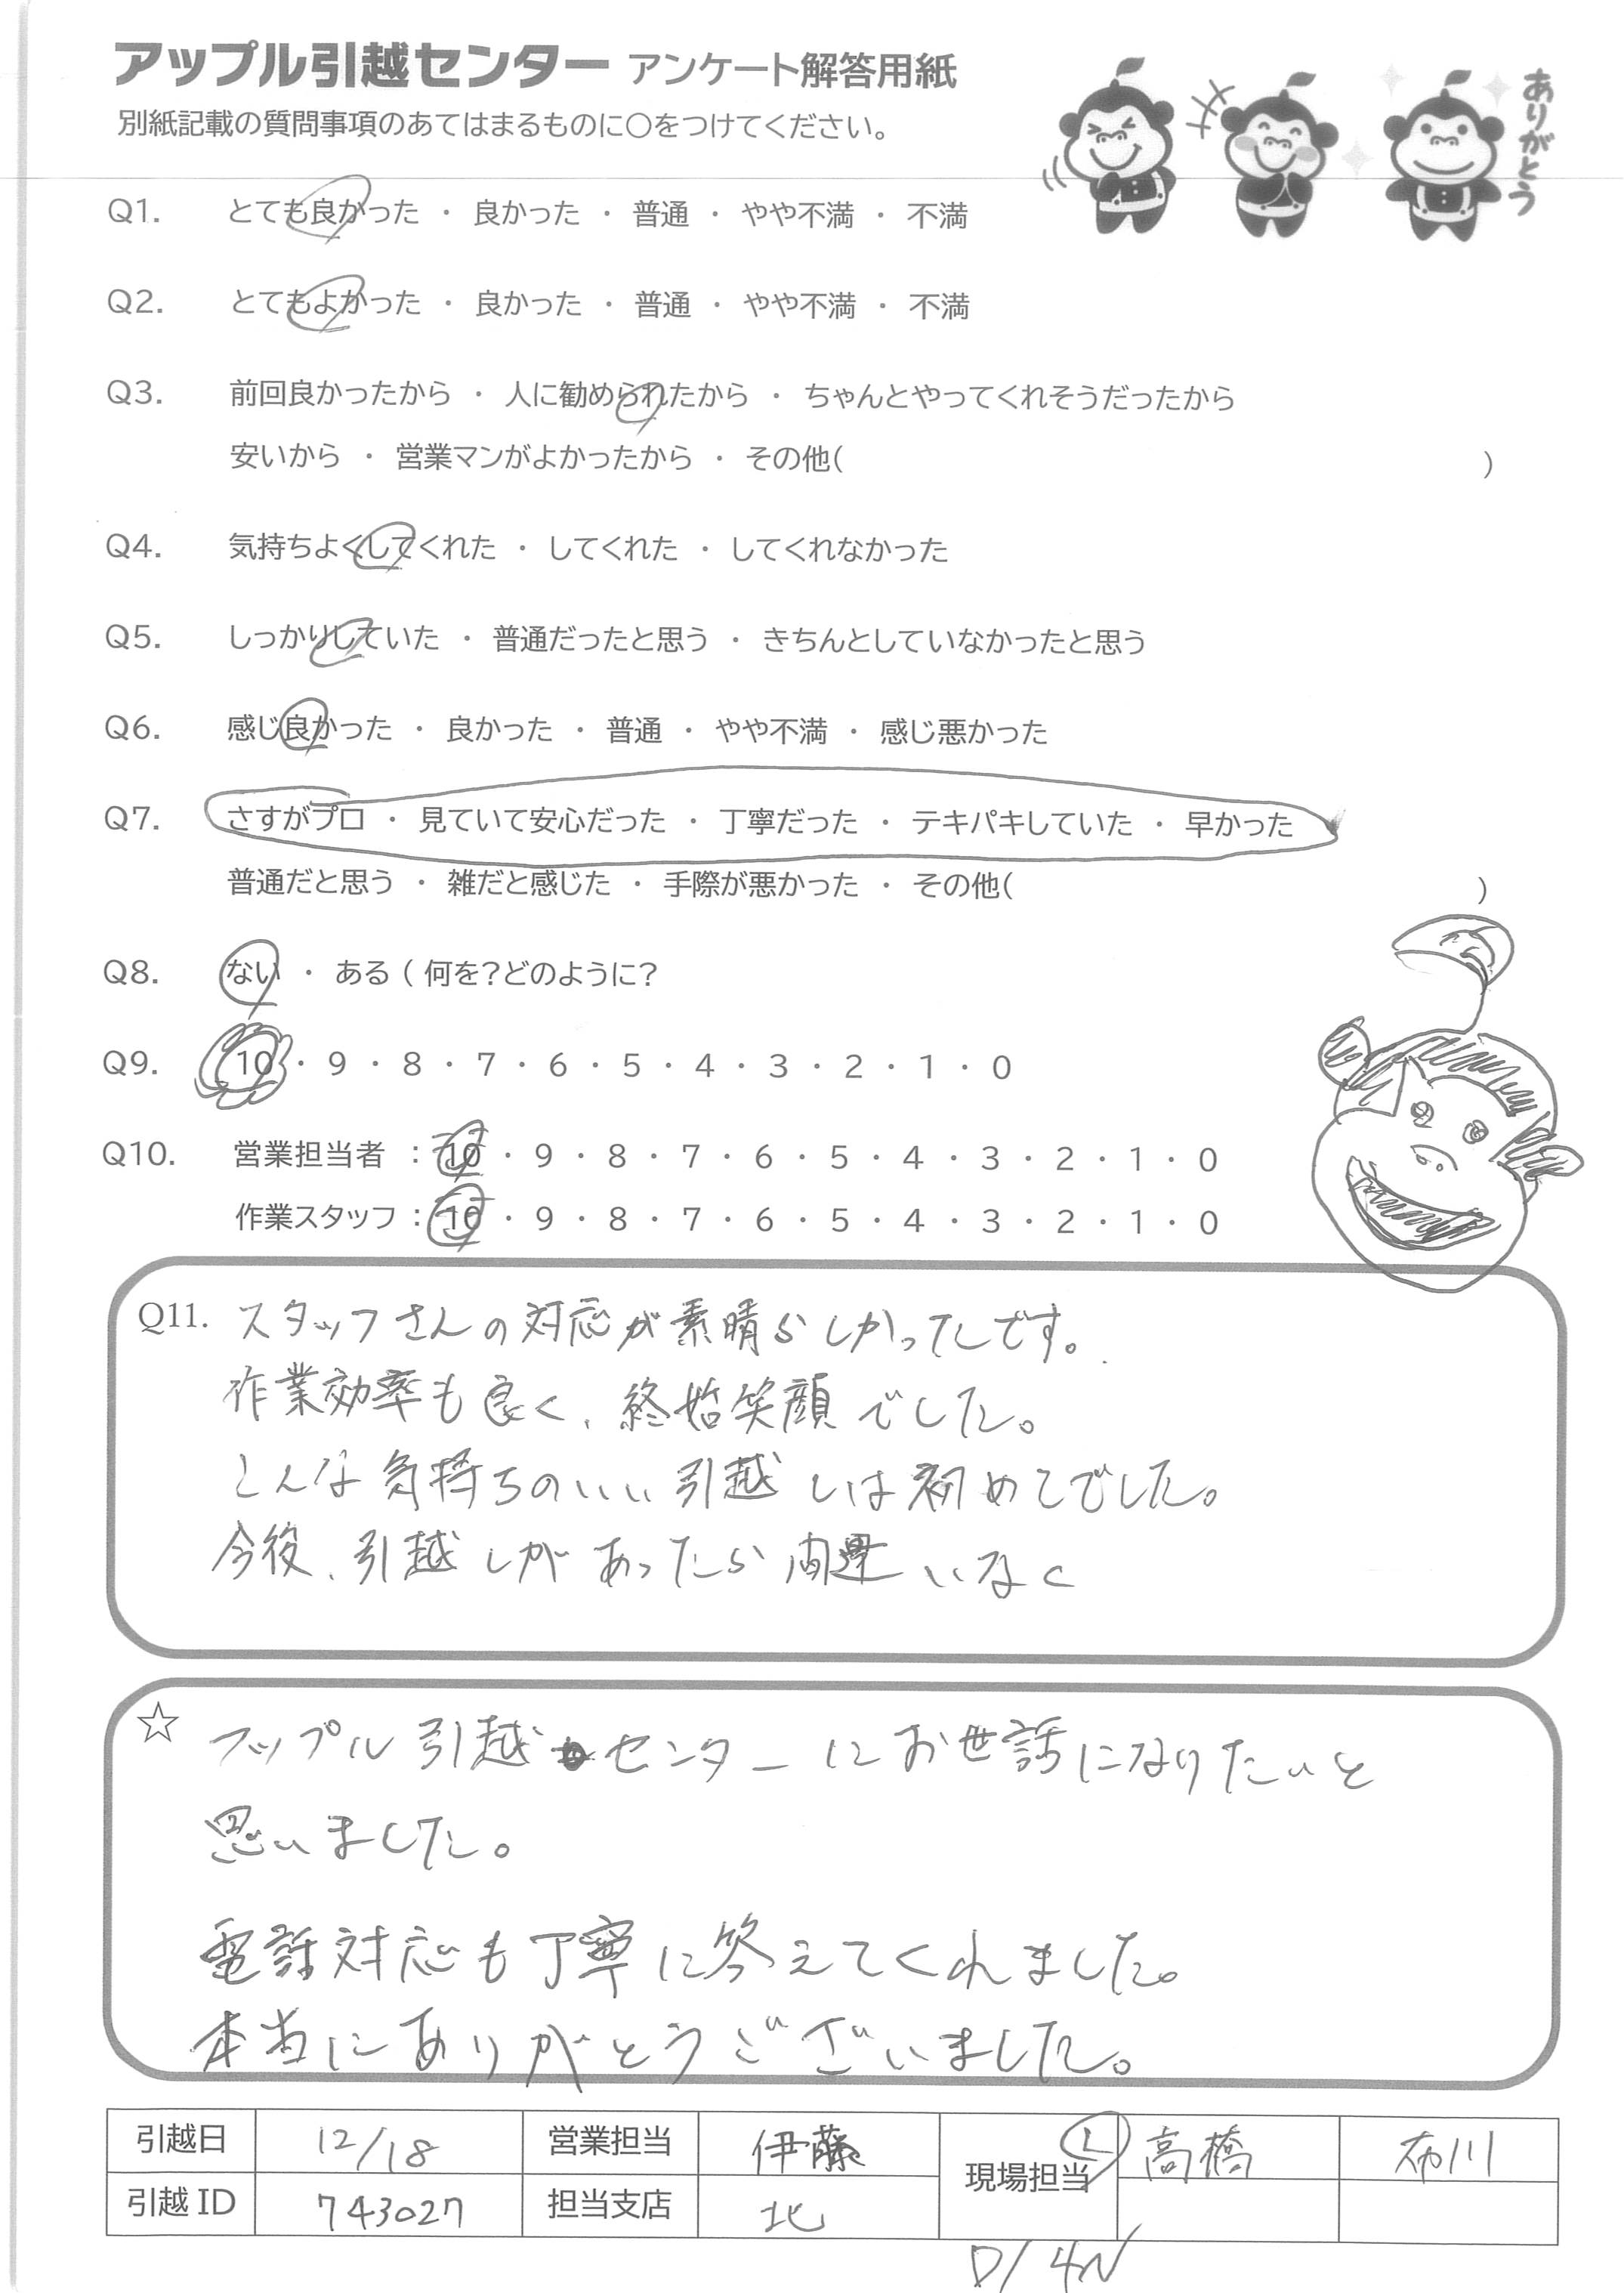 アップル引越センター アンケート解答用紙
別紙記載の質問事項のあてはまるものに○をつけてください。
ありがとう
Q1. とても良かった ・ 良かった ・ 普通 ・ やや不満 ・ 不満
Q2. とてもよかった ・ 良かった ・ 普通 ・ やや不満 ・ 不満
Q3. 前回良かったから ・ 人に勧められたから ・ ちゃんとやってくれそうだったから
安いから ・ 営業マンがよかったから ・ その他( )
Q4. 気持ちよくしてくれた ・ してくれた ・ してくれなかった
Q5. しっかりしていた ・ 普通だったと思う ・ きちんとしていなかったと思う
Q6. 感じ良かった ・ 良かった ・ 普通 ・ やや不満 ・ 感じ悪かった
Q7. さすがプロ ・ 見ていて安心だった ・ 丁寧だった ・ テキパキしていた ・ 早かった
普通だと思う ・ 雑だと感じた ・ 手際が悪かった ・ その他( )
Q8. ない ・ ある ( 何を?どのように?
Q9. 10 ・ 9 ・ 8 ・ 7 ・ 6 ・ 5 ・ 4 ・ 3 ・ 2 ・ 1 ・ 0
Q10. 営業担当者 : 10 ・ 9 ・ 8 ・ 7 ・ 6 ・ 5 ・ 4 ・ 3 ・ 2 ・ 1 ・ 0
作業スタッフ : 10 ・ 9 ・ 8 ・ 7 ・ 6 ・ 5 ・ 4 ・ 3 ・ 2 ・ 1 ・ 0
Q11. スタッフさんの対応が素晴らしかったです。
作業効率も良く、終始笑顔でした。
こんな気持ちのいい引越しは初めてでした。
今後、引越しがあったら間違いなく
☆ アップル引越センターにお世話になりたいと
思いました。
電話対応も丁寧に答えてくれました。
本当にありがとうございました。
引越日 12/18 営業担当 伊藤 現場担当 L 高橋 布川
引越ID 743027 担当支店 北
D/ 4N